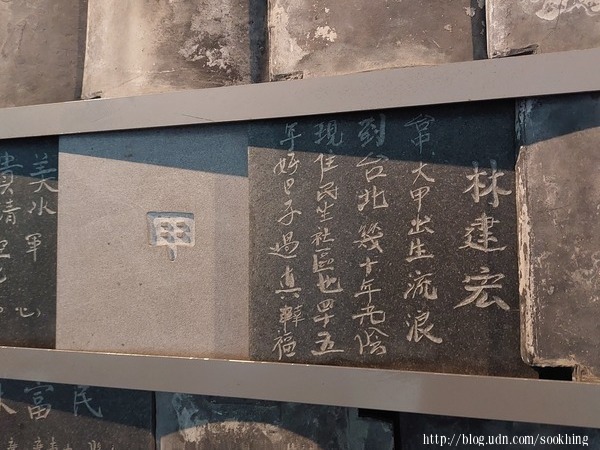 林建宏
大甲出生流浪
到台北幾十年光陰
現住民生社區也四十五
年好日子過真福
甲
美水軍心
清
富民
http://blog.udn.com/sookhing